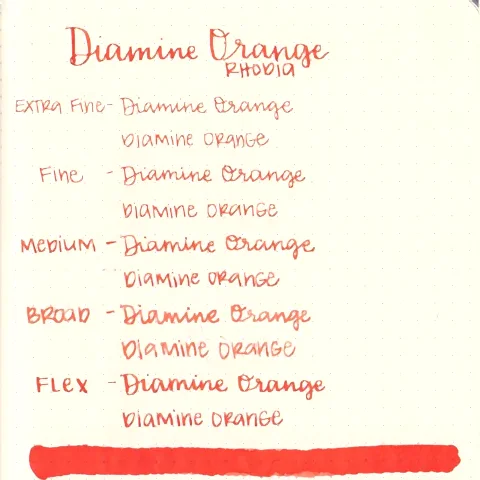 Diamine Orange
RHODIA
EXTRA FINE - Diamine Orange
DIAMINE ORANGE
FINE - Diamine Orange
DIAMINE ORANGE
MEDIUM - Diamine Orange
DIAMINE ORANGE
BROAD - Diamine Orange
DIAMINE ORANGE
FLEX - Diamine Orange
DIAMINE ORANGE